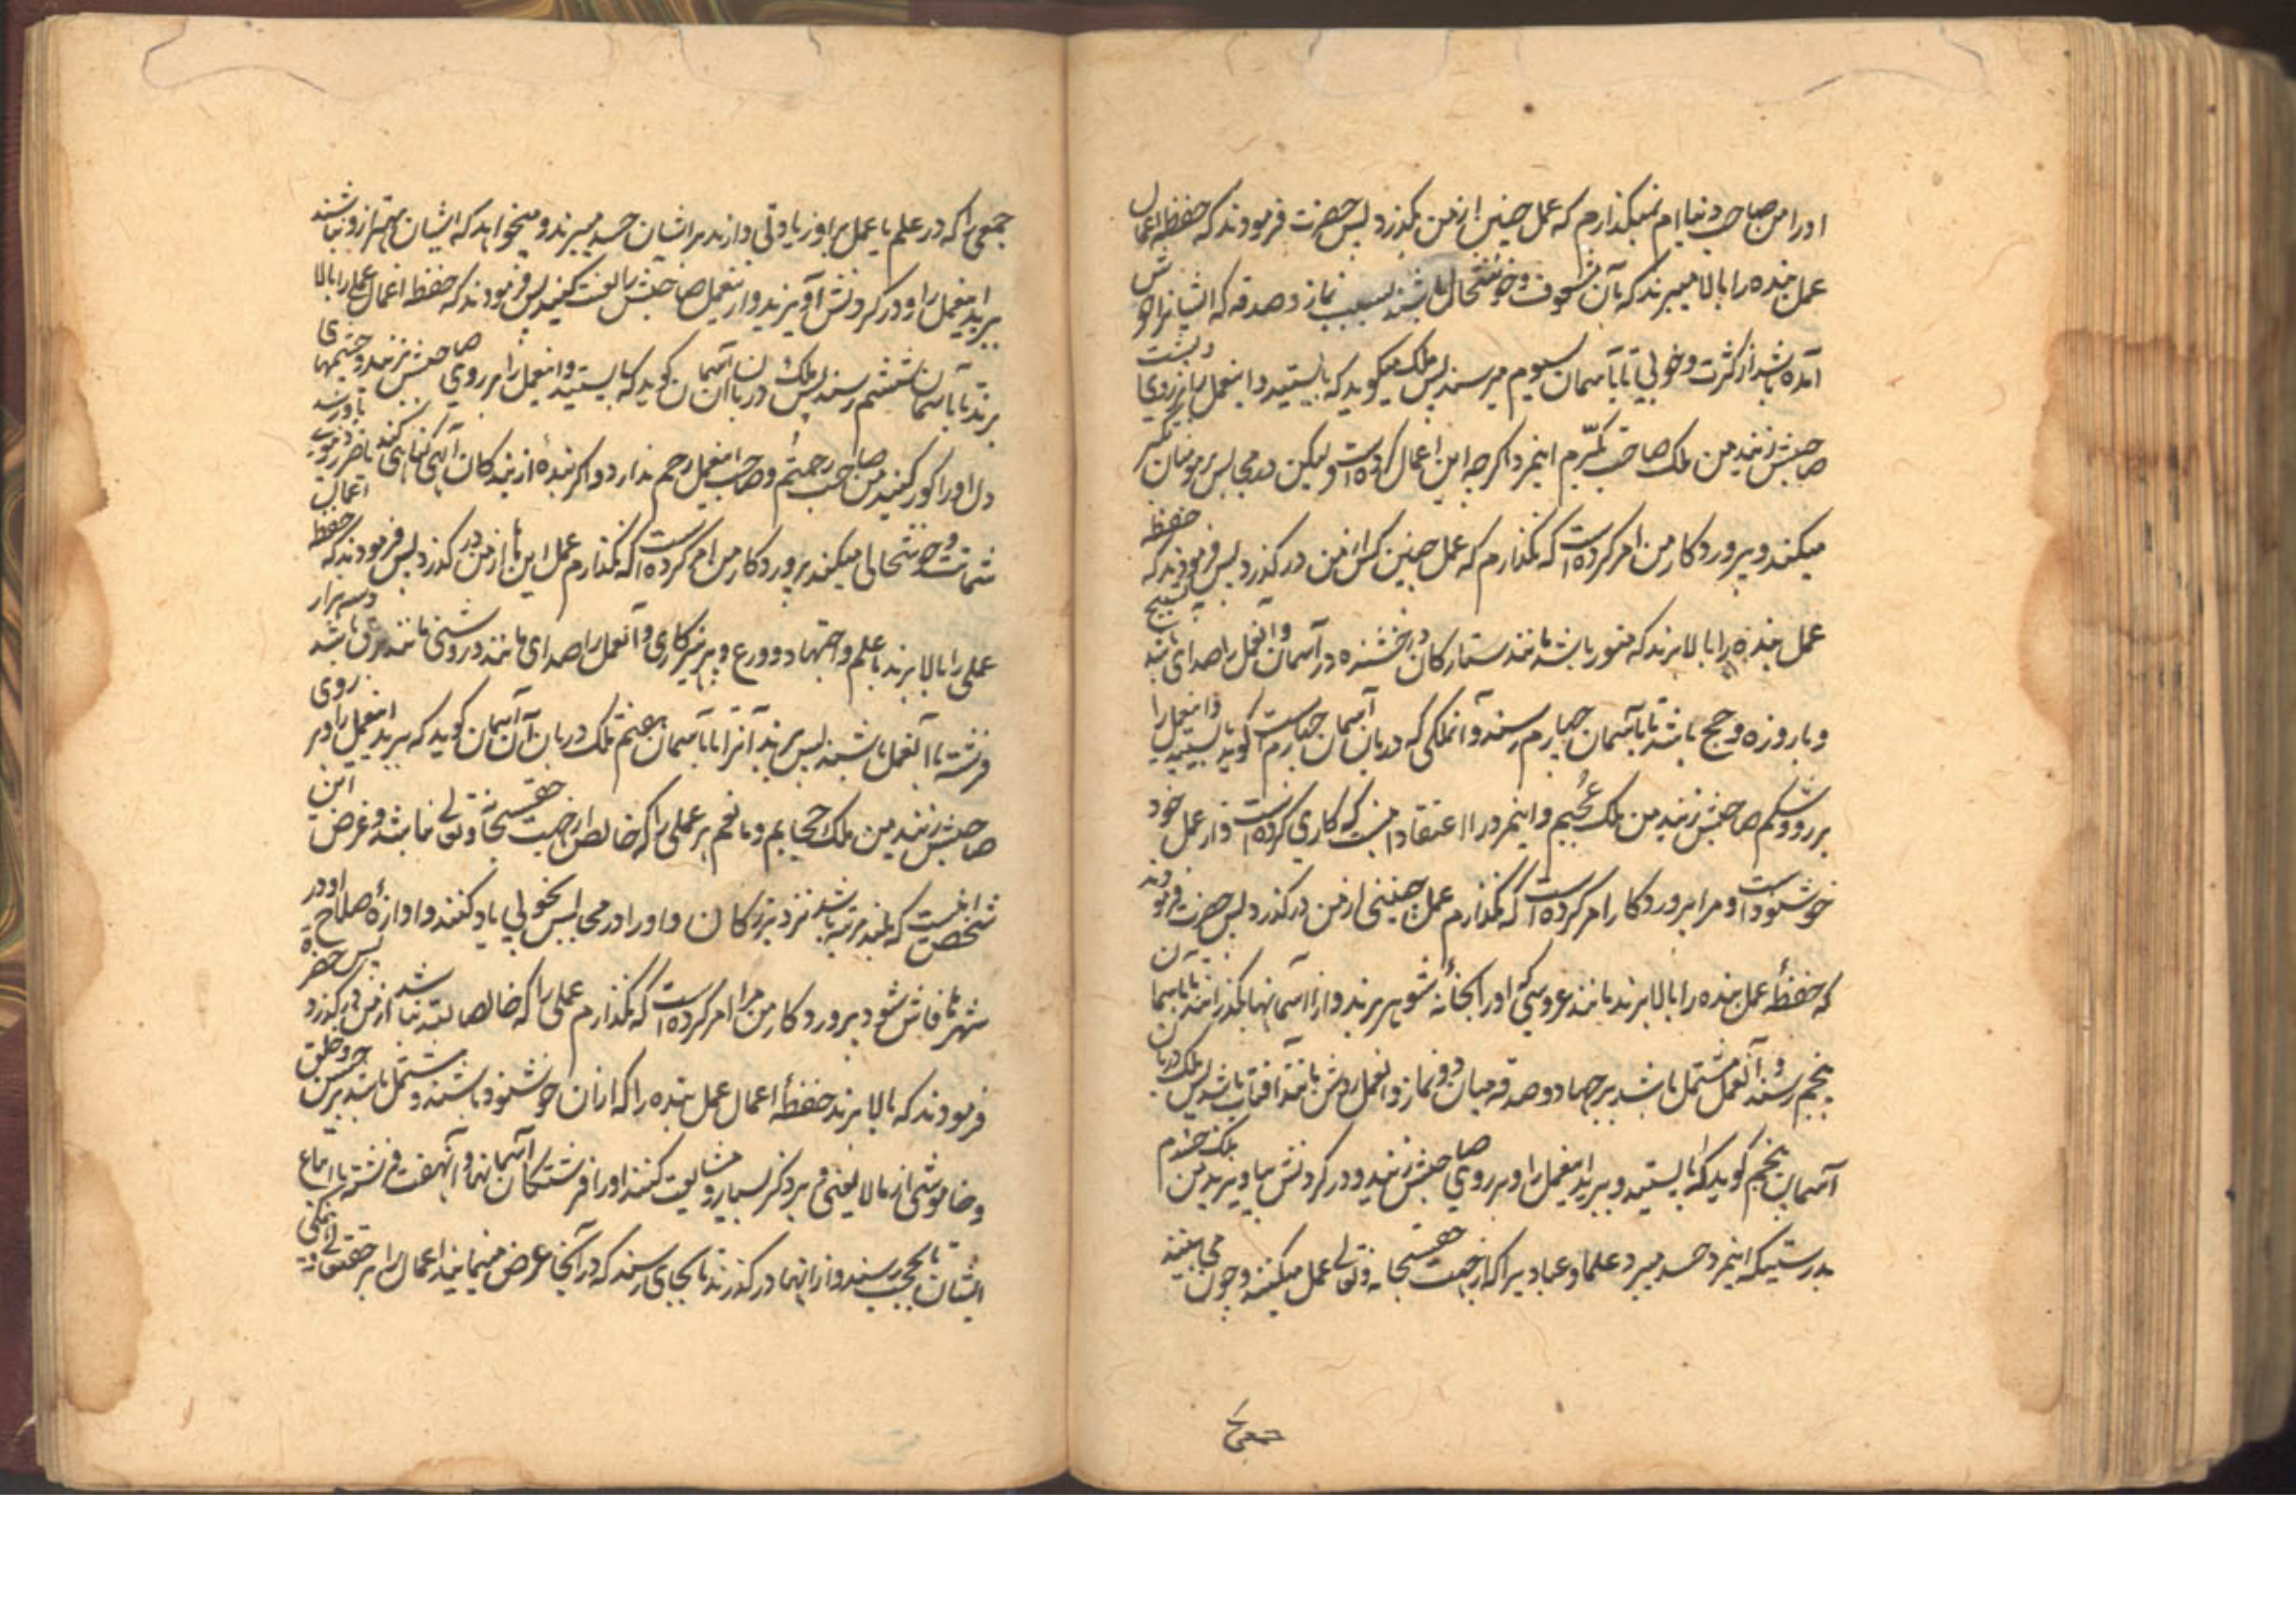 او را من صاحب دنیاام نمیگذارم که عمل چنین از من بگذرد پس حضرت فرمودند که حفظه اعمال
عمل بنده را بالا میبرند که بآن مشعوف و خوشحال باشند بسبب نماز و صدقه که ایشانرا خوش
آمده باشد از کثرت و خوبی تا بآسمان سیوم میرسند پس ملک میگوید که بایستید و این عمل را بر روی و پشت
صاحبش زنید من ملک صاحب تکبّرم اینمرد اگرچه این اعمال کرده است ولیکن در مجالس بر مومنان تکبر
میکند و پروردگار من امر کرده است که نگذارم که عمل چنین کس از من درگذرد پس فرمودند که حفظه
عمل بنده را بالا برند که منور باشد مانند ستارگان درخشنده در آسمان و آنعمل را صدای باشد بتسبیح
و با روزه و حج باشد تا بآسمان چهارم رسند و آنملکی که دربان آسمان چهارم است گوید بایستید و اینعمل را
بر رو و شکم صاحبش زنید من ملک عُجبم و اینمرد را اعتقاد اینست که کاری کرده است و از عمل خود
خوشنود است و مرا پروردگار امر کرده است که نگذارم عمل چنینی از من درگذرد پس حضرت فرمودند
که حفظهٔ عمل بنده را بالا برند مانند عروسی که او را بخانهٔ شوهر برند و از آسمانها بگذرانند تا بآسمان
پنجم رسند و آنعمل مشتمل باشد بر جهاد و صدقه میان دو نماز و آنعمل روشن مانند آفتاب باشد پس ملک دربان
آسمان پنجم گوید که بایستید و ببرید اینعمل را و بر روی صاحبش زنید و در گردنش بیاویزید من ملک حسدم
بدرستیکه اینمرد حسد میبرد علما و عبادیرا که از جهت حقسبحانه وتعالی عمل میکنند و چون می‌بیند
جمعی
جمعی را که در علم یا عمل بر او زیادتی دارند بر ایشان حسد میبرند و میخواهد که ایشان بهتر از او نباشند
ببرید اینعمل را و در گردنش آویزید و این عمل صاحبش را لعنت کنید پس فرمودند که حفظه اعمال عملی را بالا
برند تا بآسمان ششم رسند پس ملک دربان آن آسمان گوید که بایستید و اینعمل را بر روی صاحبش زنید و چشمهای
دل او را کور کنید من صاحب رحمتم و صاحب اینعمل رحم ندارد و اگر بندهٔ از بندگان الهی گناهی کند یا ضرری باو رسد
شماتت و خوشحالی میکند پروردگار من امر کرده است که نگذارم عمل این از من درگذرد پس فرمودند که حفظه اعمال
عملی را بالا برند با علم و اجتهاد و ورع و پرهیزکاری و آنعمل را صدای مانند و روشنی مانند برق باشد و سه هزار
فرشته با آنعمل باشند پس برند آنرا تا بآسمان هفتم ملک دربان آن آسمان گوید که ببرید اینعمل را و بر روی
صاحبش زنید من ملک حجابم و مانعم هر عملی را که خالص از جهت حقسبحانه وتعالی نباشد و غرض این
شخص اینست که بلند مرتبه باشد نزد بزرگان و او را در مجالس بخوبی یاد کنند و آوازهٔ صلاح او در
شهرها فاش شود پروردگار من مرا امر کرده است که نگذارم عملی را که خالصا لله نباشد از من درگذرد پس حضرة
فرمودند که بالا برند حفظهٔ اعمال عمل بنده را که از آن خوشنود باشند و مشتمل باشد بر حسن خلق
و خاموشی از مالایعنی و بر ذکر بسیار و مشایعت کنند او را فرشتگان آسمانها و آن هفت فرشته با اتباع
ایشان تا بحجب رسند و از آنها درگذرند تا بجای رسند که در آنجا عرض مینمایند اعمال را بر حقتعالی